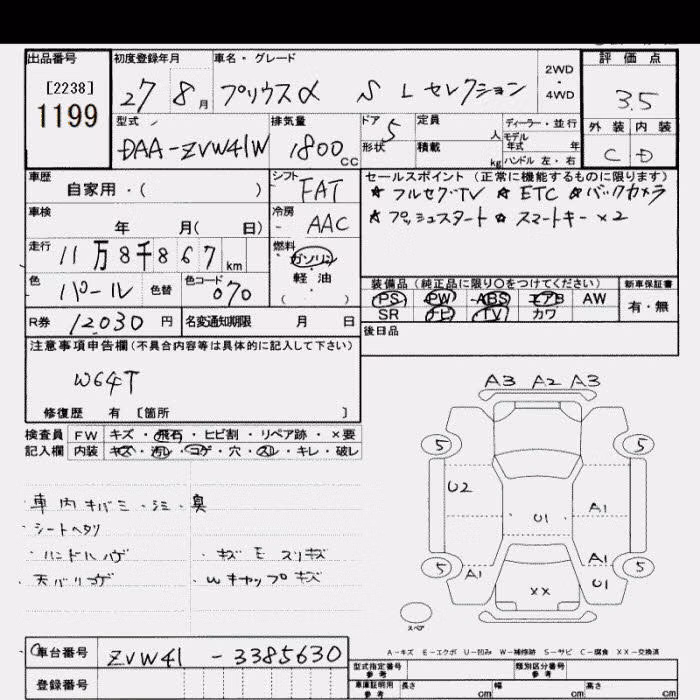 出品番号 初度登録年月 車名・グレード 2WD・4WD 評価点
[2238] 27 8月 プリウスα S Lセレクション 3.5
1199 型式 排気量 ドア 定員 ディーラー・並行 外装 内装
DAA-ZVW41W 1800cc 5 形状 積載 人 kg モデル年式 年式 ハンドル 左・右 C D
車歴 シフト セールスポイント(正常に機能するものに限ります)
自家用・( ) FAT ★フルセグTV ★ETC ★バックカメラ
車検 年 月( 日) 冷房 AAC ★プッシュスタート ★スマートキー×2
走行 11万8千867km 燃料 ガソリン
色 パール 色替 色コード 070 軽油 ( ) 装備品(純正品に限り○をつけてください) 新車保証書
PS PW ABS エアB AW 有・無
R券 12030円 名変通知期限 月 日 SR ナビ TV カワ
後日品
注意事項申告欄(不具合内容等は具体的に記入して下さい)
W64T
修復歴 有 [箇所 ]
A3 A2 A3
検査員 FW キズ・飛石・ヒビ割・リペア跡・×要
記入欄 内装 キズ・汚レ・コゲ・穴・スレ・キレ・破レ
5 5
U2 A1
U1
A1
5 A1 U1 5
XX
・車内キバミ・シミ・臭
・シートヘタリ
・ハンドルハゲ ・キズモスリキズ
天バリコゲ ・Wキャップキズ
スペア
A-キズ E-エクボ U-凹み W-補修跡 S-サビ C-腐食 XX-交換済
車台番号 ZVW41 -3385630
登録番号 型式指定番号 参考 類別区分番号 参考
車庫証明用 参考 長さ cm 幅 cm 高さ cm